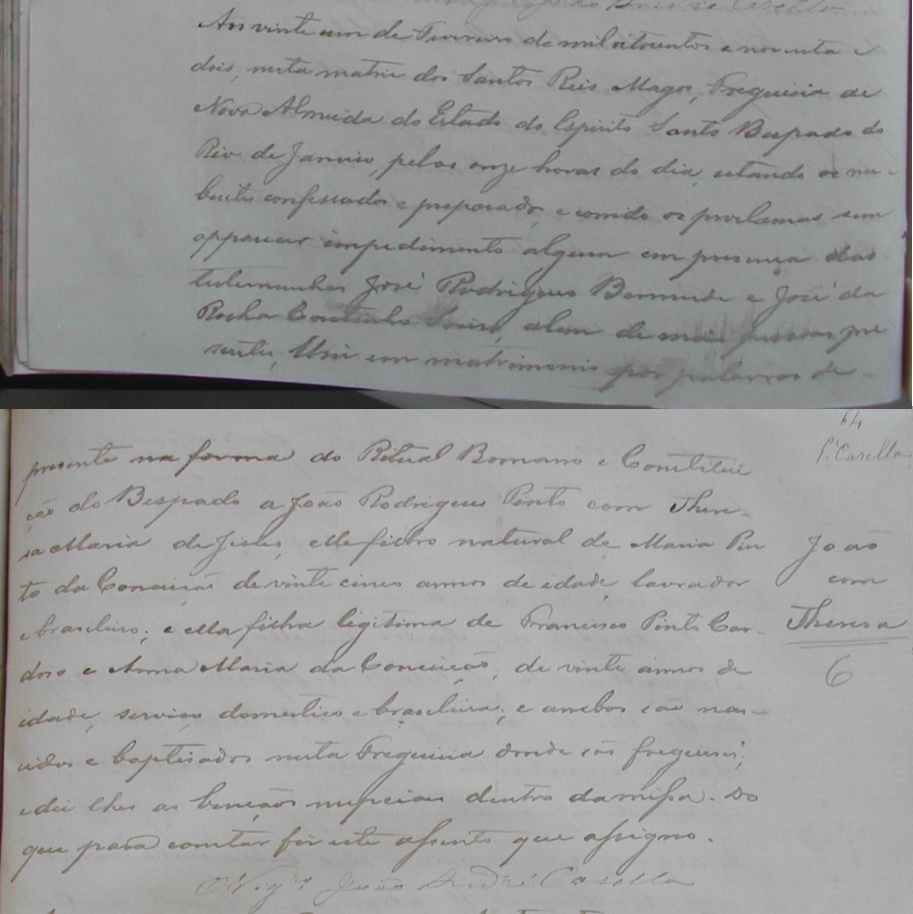 João André Casella
Aos vinte um de Fevereiro de mil oitocentos e noventa e
dois, nesta matriz dos Santos Reis Magos, Freguesia de
Nova Almeida do Estado do Espirito Santo Bispado do
Rio de Janeiro, pelas onze horas do dia, estando os nu-
bentes confessados e preparados, e corrido os proclamas sem
apparecer impedimento algum em presença das
testemunhas José Rodrigues Bermude e José da
Rocha Coutinho, alem de mais pessoas pre
sentes, Uni em matrimonio por palavras de
64
P.e Casella
presente na forma do Ritual Romano e Constitui
ção do Bispado a João Rodrigues Pinto com There-
sa Maria de Jesus, elle filho natural de Maria Pin
to da Conceição de vinte cinco annos de idade, lavrador
e brasileiro; e ella filha legitima de Francisco Pinto Car-
doso e Anna Maria da Conceição, de vinte annos de
idade, serviço domestico e brasileira; e ambos são nas-
cidos e baptisados nesta Freguesia donde são freguezes;
e dei lhes as bençãos nupciaes dentro da missa. Do
que para constar fiz este assento que assigno.
O Vig.ro João André Casella
João
com
Theresa
6